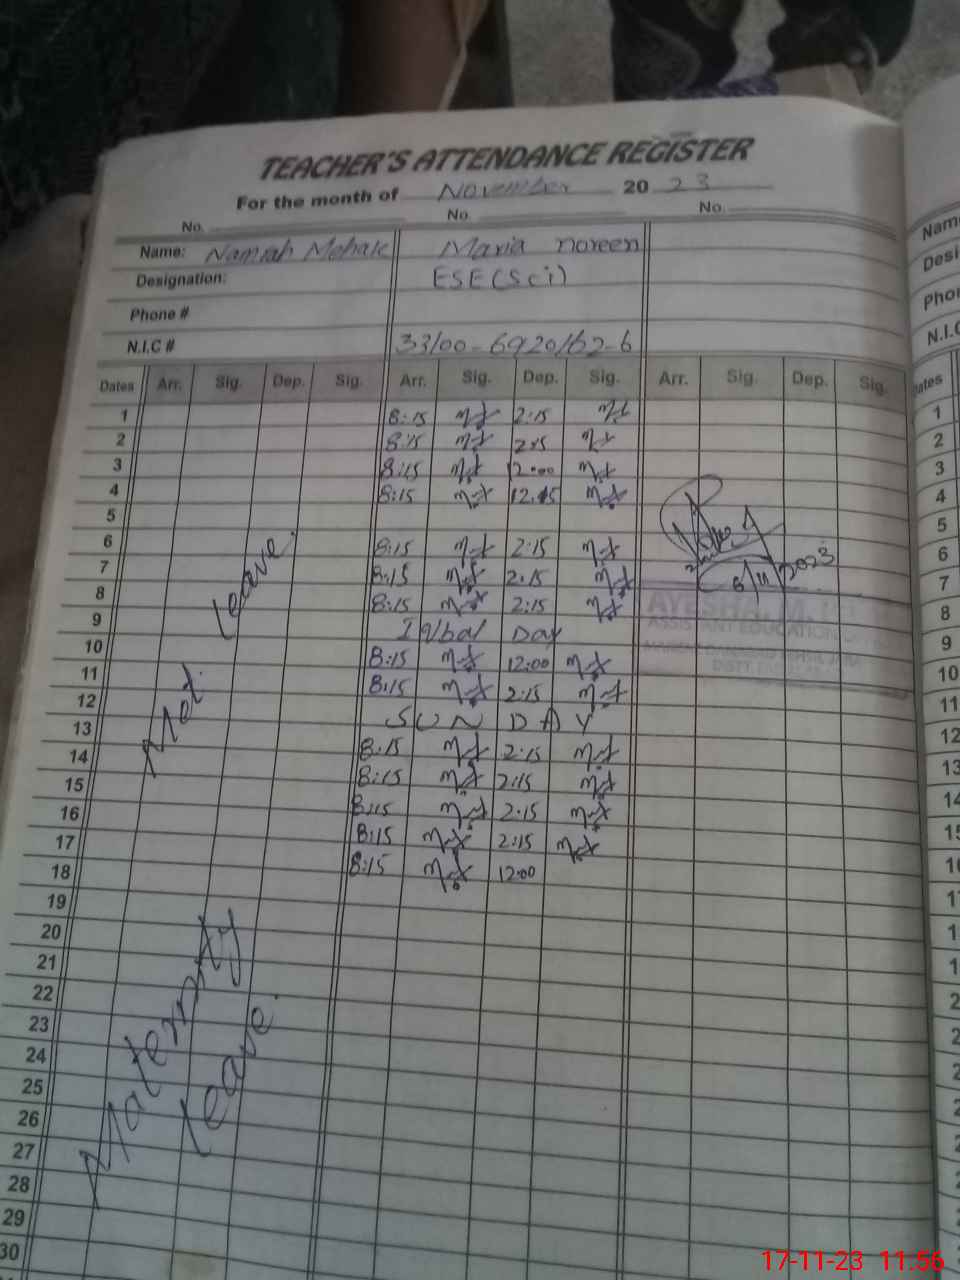 TEACHER'S ATTENDANCE REGISTER
For the month of November 20 23
No. No. No.
Name: Namrah Maria noreen
Designation: ESE (Sci)
Phone #
N.I.C # 33100-6920162-6
Dates Arr. Sig. Dep. Sig. Arr. Sig. Dep. Sig. Arr. Sig. Dep. Sig.
1 8:15 2:15
2 8:15 2:15
3 8:15 12:00
4 8:15 12:15
5
6 8:15 2:15
7 8:15 2:15
8 8:15 2:15
9 Iqbal Day
10 8:15 12:00
11 8:15 2:15
12 SUNDAY
13 8:15 2:15
14 8:15 2:15
15 8:15 2:15
16 8:15 2:15
17 8:15 12:00
18
19
20
21
22
23
24
25
26
27
28
29
30
Mat. leave.
Maternity
leave.
6/11/2023
AYESHA
ASSISTANT EDUCATION
Name
Desi
Phon
N.I.C
1
2
3
4
5
6
7
8
9
10
11
12
13
14
17-11-23 11:56